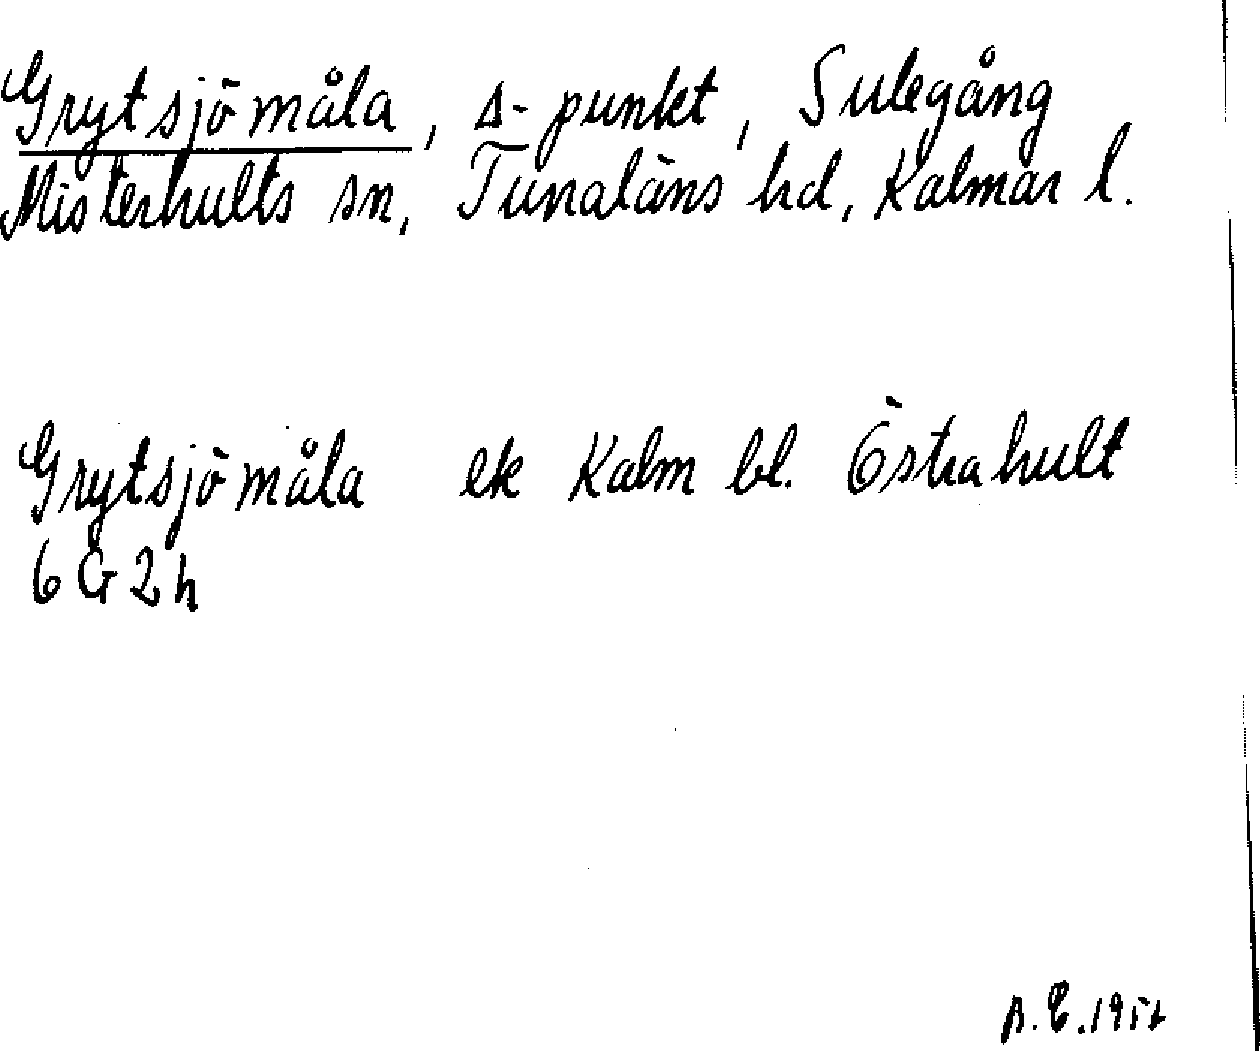 Grytsjömåla, s-punkt, Sulegång
Misterhults sn, Tunaläns hd, Kalmar l.
Grytsjömåla ek Kalm bl. Östrahult
6G2h